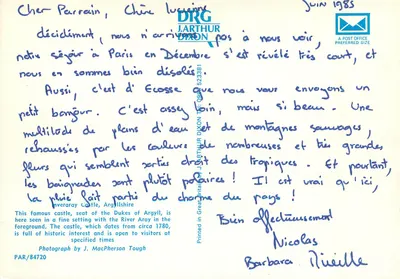 Juin 1985
Cher Parrain, Chère
décidément, nous n'arrivons pas à nous voir,
notre séjour à Paris en Décembre s'est révélé très court, et
nous en sommes bien désolés.
Aussi, c'est d'Ecosse que nous vous envoyons un
petit bonjour. C'est assez loin, mais si beau. Une
multitude de plans d'eau et de montagnes sauvages,
rehaussées par les couleurs de nombreuses et très grandes
fleurs qui semblent sorties droit des tropiques. Et pourtant,
les baignades sont plutôt polaires ! Il est vrai qu'ici,
la pluie fait partie du charme du pays !
Bien affectueusement
Nicolas
Barbara Mireille
DRG
J.ARTHUR
DIXON
A POST OFFICE
PREFERRED SIZE
Inveraray Castle, Argyllshire
This famous castle, seat of the Dukes of Argyll, is
here seen in a fine setting with the River Aray in the
foreground. The castle, which dates from circa 1780,
is full of historic interest and is open to visitors at
specified times
Photograph by J. MacPherson Tough
PAR/84720